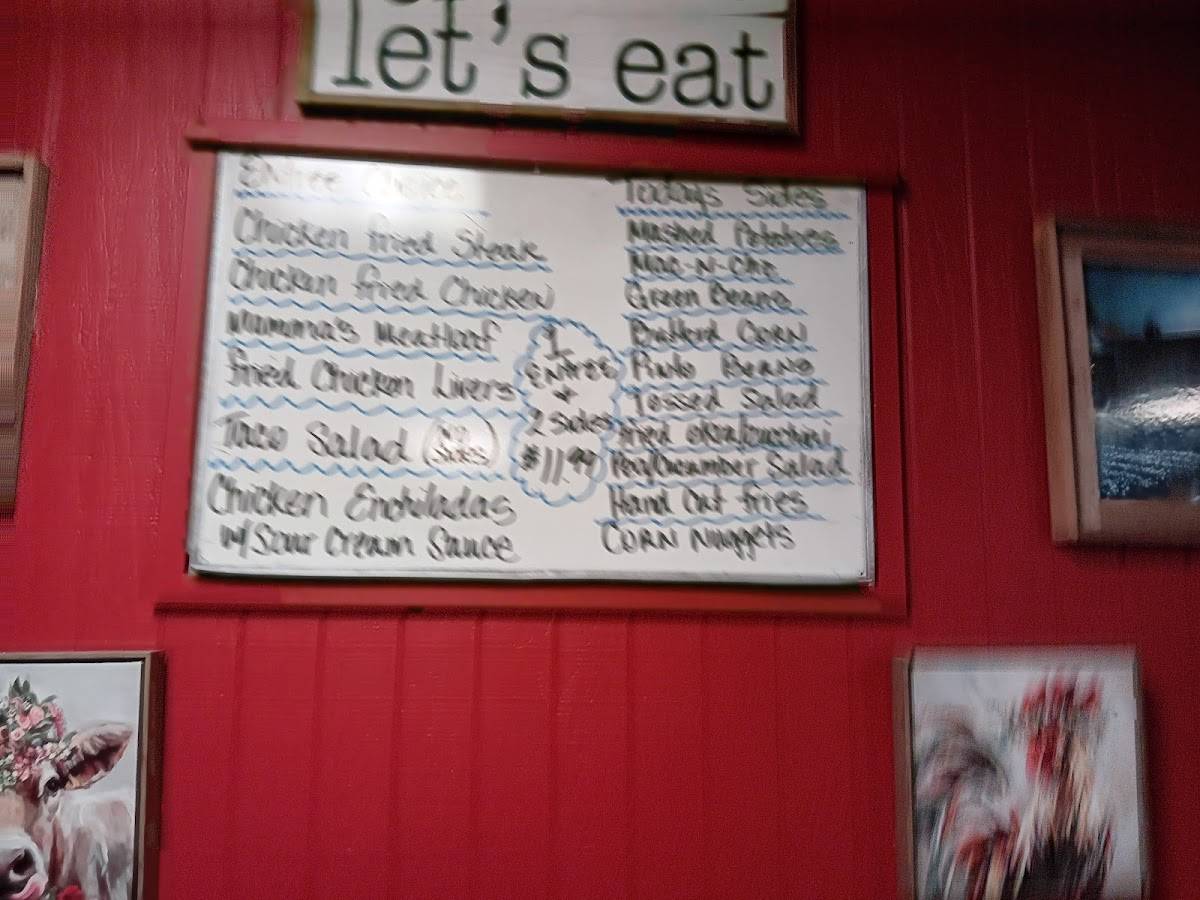 let's eat
Entree Choice
Chicken fried Steak
Chicken fried Chicken
Mamma's Meatloaf
fried Chicken Livers
Taco Salad (No Sides)
Chicken Enchiladas
w/Sour Cream Sauce
1
Entree
+
2 sides
$11.99
Todays Sides
Mashed Potatoes
Mac-N-Che
Green Beans
Buttered CORN
Pinto Beans
Tossed Salad
fried okra/zucchini
Pea/Cucumber Salad
Hand Cut fries
CORN Nuggets